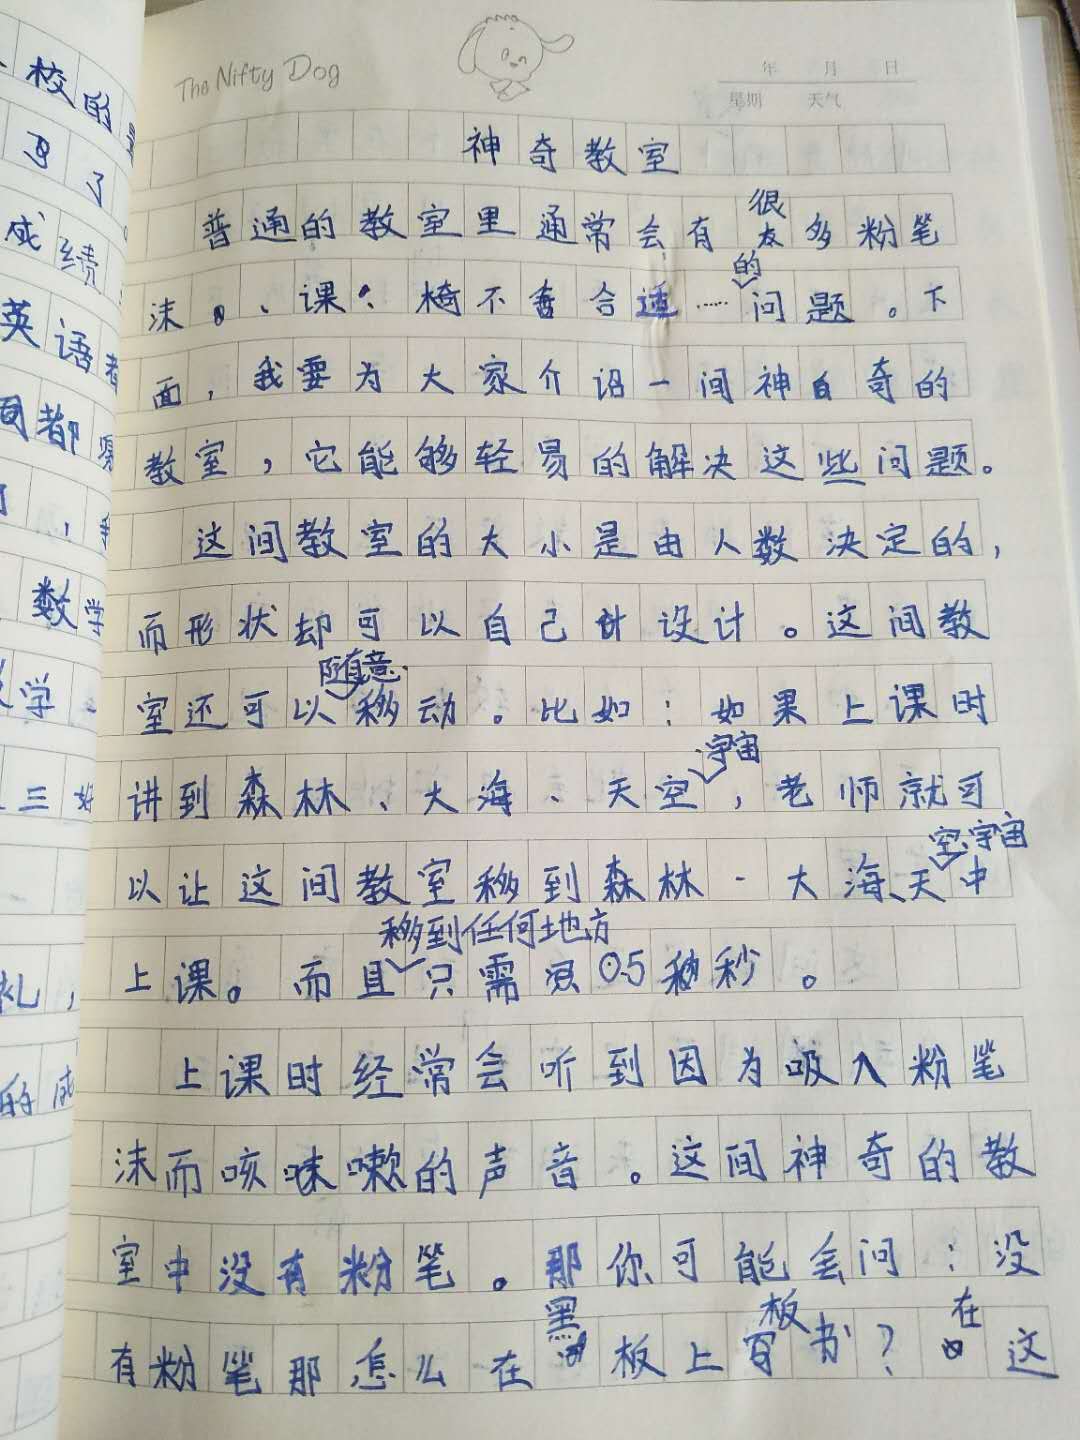 The Nifty Dog
年 月 日
星期 天气
神奇教室
普通的教室里通常会有很多粉笔
沫、课椅不合适……的问题。下
面，我要为大家介诏一间神奇的
教室，它能够轻易的解决这些问题。
这间教室的大小是由人数决定的，
而形状却可以自己设计。这间教
室还可以随意移动。比如：如果上课时
讲到森林、大海、天空、宇宙，老师就可
以让这间教室移到森林、大海、天空、宇宙中
上课。而且移到任何地方只需0.5秒。
上课时经常会听到因为吸入粉笔
沫而咳嗽的声音。这间神奇的教
室中没有粉笔。那你可能会问：没
有粉笔那怎么在黑板上板书？在这
校的
了
成绩
英语
都
，
数学
学
三好
礼，
的成